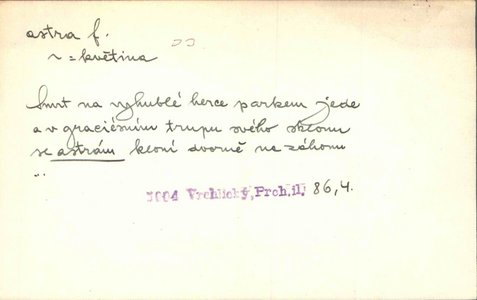 astra f.
~ = květina
Smrt na vyhublé herce parkem jede
a v graciésním trupu svého sklonu
se astrám kloní dvorně na záhonu
..
1904 Vrchlický, Proh.il. 86,4.